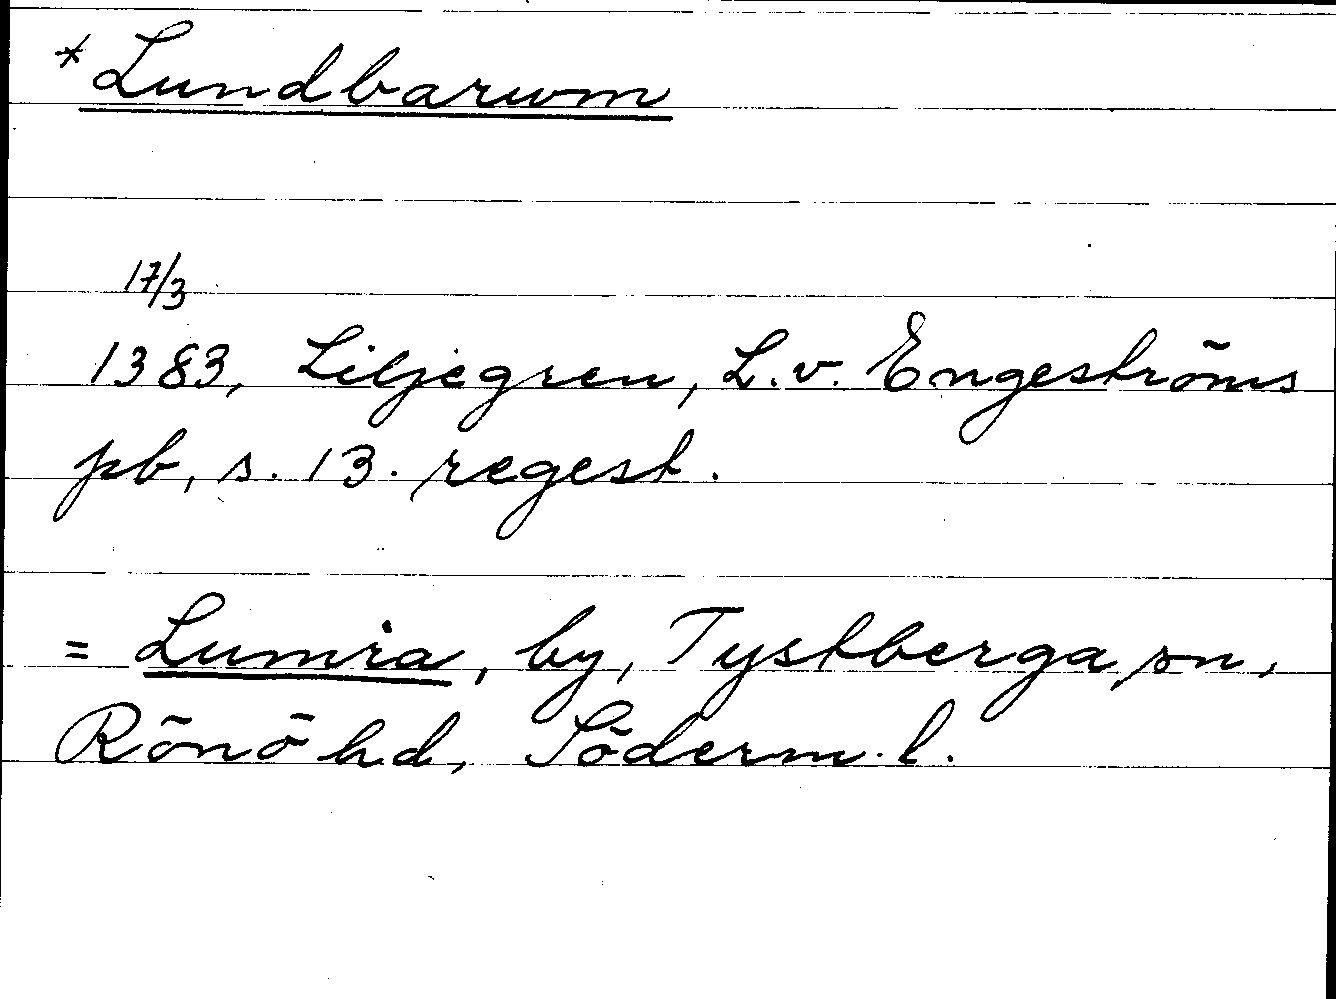 * Lundbarum
17/3
1383, Liljegren, L.v. Engeströms
pb, s. 13. regest.
= Lumra, by, Tystberga sn,
Rönö hd, Söderm. l.